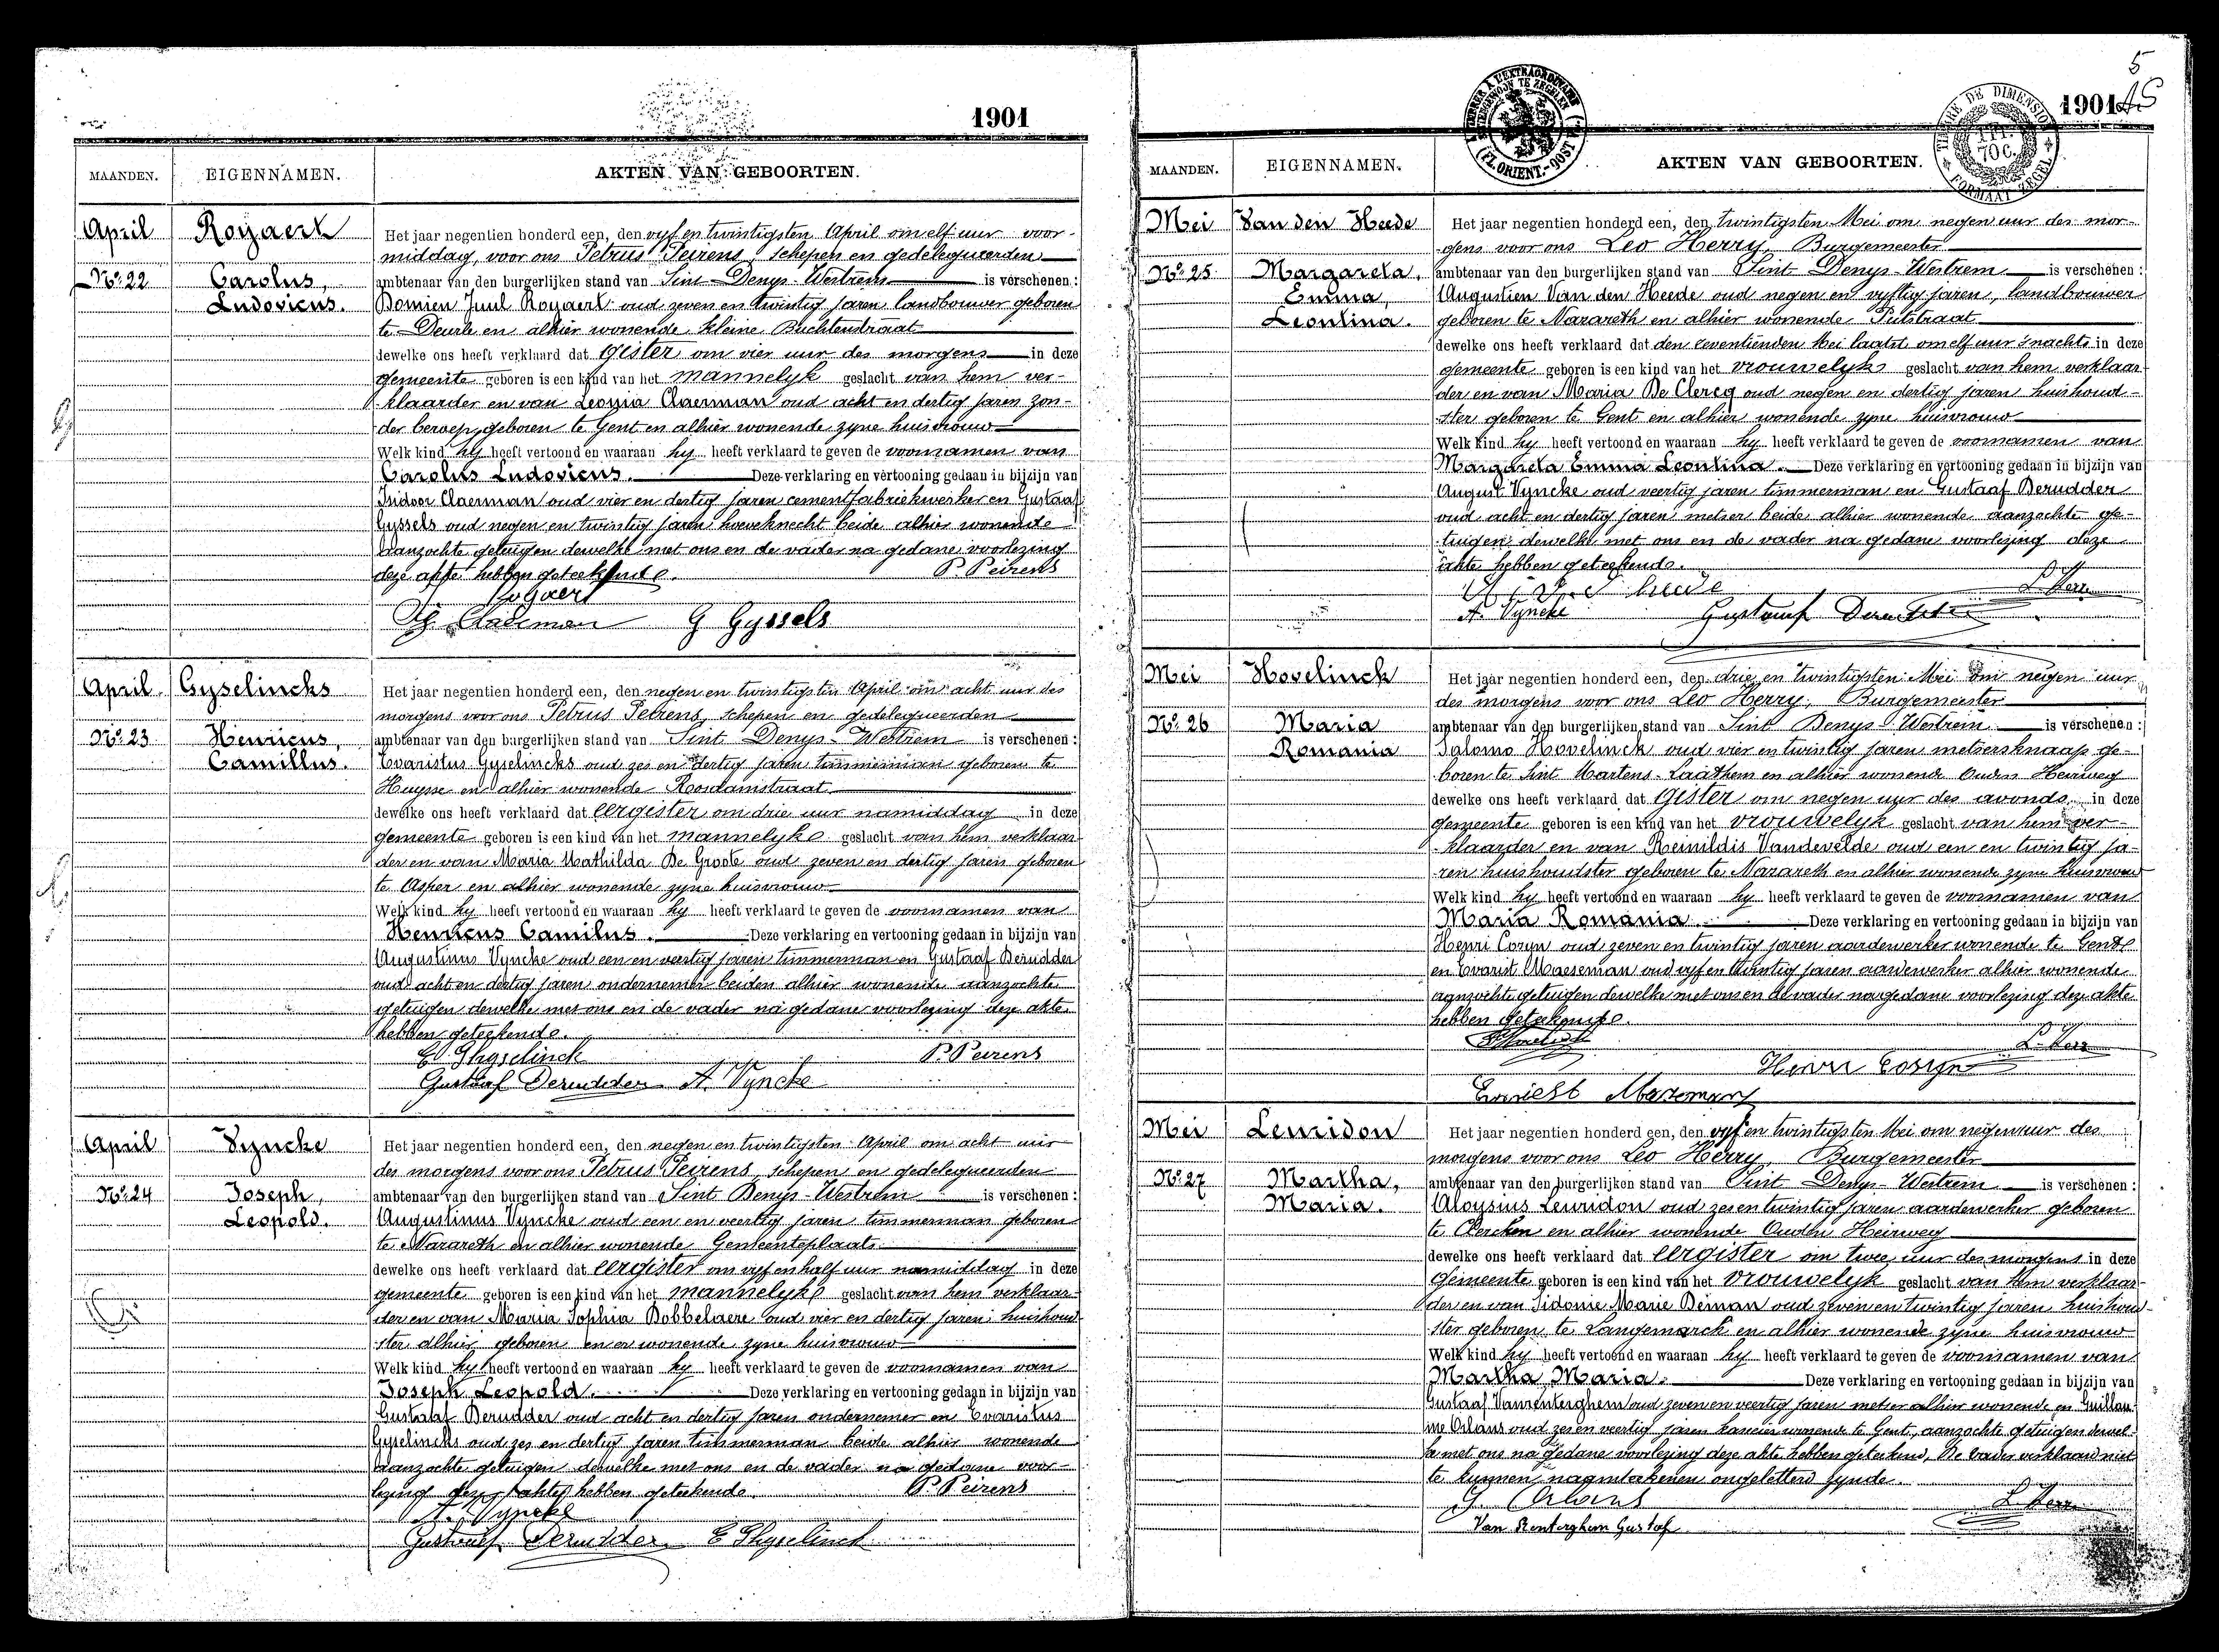 1901
MAANDEN. EIGENNAMEN. AKTEN VAN GEBOORTEN.
April Royaert Het jaar negentien honderd een, den vyf en twintigsten April om elf uur voor-
middag, voor ons Petrus Peirens, schepen en gedelegueerden
No. 22 Carolus, ambtenaar van den burgerlijken stand van Sint-Denys-Westrem is verschenen:
Ludovicus. Domien Juul Royaert oud zeven en twintig jaren landbouwer geboren
te Deurle en alhier wonende, kleine Buchtendraat
dewelke ons heeft verklaard dat Gister om vier uur des morgens in deze
gemeente geboren is een kind van het mannelyk geslacht van hem ver-
klaarder en van Leonia Claerman oud acht en dertig jaren zon-
der beroep, geboren te Gent en alhier wonende zyne huisvrouw
Welk kind hy heeft vertoond en waaraan hy heeft verklaard te geven de voornamen van
Carolus Ludovicus. Deze verklaring en vertooning gedaan in bijzijn van
Isidoor Claerman oud vier en dertig jaren cementfabriekwerker en Gustaaf
Gyssels oud negen en twintig jaren hoveknecht beide alhier wonende
aanzochte getuigen dewelke met ons en de vader na gedane voorlezing
deze akte hebben geteekend. P. Peirens
Royaert
Claerman G Gyssels
April Gyselincks Het jaar negentien honderd een, den negen en twintigsten April om acht uur des
morgens voor ons Petrus Peirens, schepen en gedelegueerden
No. 23 Henricus, ambtenaar van den burgerlijken stand van Sint Denys-Westrem is verschenen:
Camillus. Evaristus Gyselincks oud zes en dertig jaren timmerman geboren te
Huysse en alhier wonende Roosdamstraat
dewelke ons heeft verklaard dat eergister om drie uur namiddag in deze
gemeente geboren is een kind van het mannelyke geslacht van hem verklaar-
der en van Maria Mathilda De Groote oud zeven en dertig jaren geboren
te Asper en alhier wonende zyne huisvrouw
Welk kind hy heeft vertoond en waaraan hy heeft verklaard te geven de voornamen van
Henricus Camilus. Deze verklaring en vertooning gedaan in bijzijn van
Augustinus Vyncke oud een en veertig jaren timmerman en Gustaaf Derudder
oud acht en dertig jaren ondernemer beiden alhier wonende aanzochte
getuigen dewelke met ons en de vader na gedane voorlezing deze akte
hebben geteekende.
E. Ghyselinck P. Peirens
Gustaaf Derudder A. Vyncke
April Vyncke Het jaar negentien honderd een, den negen en twintigsten April om acht uur
des morgens voor ons Petrus Peirens, schepen en gedelegueerden
No. 24 Joseph, ambtenaar van den burgerlijken stand van Sint Denys-Westrem is verschenen:
Leopold. Augustinus Vyncke oud een en veertig jaren timmerman geboren
te Nazareth en alhier wonende Gemeenteplaats
dewelke ons heeft verklaard dat eergister om vyf en half uur namiddag in deze
gemeente geboren is een kind van het mannelyke geslacht van hem verklaar-
der en van Maria Sophia Dobbelaere oud vier en dertig jaren, huishoud-
ster alhier geboren en er wonende, zyne huisvrouw
Welk kind hy heeft vertoond en waaraan hy heeft verklaard te geven de voornamen van
Joseph Leopold. Deze verklaring en vertooning gedaan in bijzijn van
Gustaaf Derudder oud acht en dertig jaren ondernemer en Evaristus
Gyselincks oud zes en dertig jaren timmerman beide alhier wonende
aanzochte getuigen dewelke met ons en de vader na gedane voor-
lezing deze akte hebben geteekende. P. Peirens
A. Vyncke
Gustaaf Derudder E Ghyselinck
5
1901
MAANDEN. EIGENNAMEN. AKTEN VAN GEBOORTEN.
Mei Van den Heede Het jaar negentien honderd een, den twintigsten Mei om negen uur des mor-
gens voor ons Leo Herry, Burgemeester
No. 25 Margareta, ambtenaar van den burgerlijken stand van Sint-Denys-Westrem is verschenen:
Emma, Augustien Van den Heede oud negen en vyftig jaren, landbouwer
Leontina. geboren te Nazareth en alhier wonende Putstraat
dewelke ons heeft verklaard dat den zeventienden Mei laatst om elf uur 'snachts in deze
gemeente geboren is een kind van het vrouwelyk geslacht van hem verklaar-
der en van Maria De Clercq oud negen en dertig jaren huishoud-
ster geboren te Gent en alhier wonende zyne huisvrouw
Welk kind hy heeft vertoond en waaraan hy heeft verklaard te geven de voornamen van
Margareta Emma Leontina. Deze verklaring en vertooning gedaan in bijzijn van
August Vyncke oud veertig jaren timmerman en Gustaaf Derudder
oud acht en dertig jaren metser beide alhier wonende aanzochte ge-
tuigen dewelke met ons en de vader na gedane voorlezing deze
akte hebben geteekende.
L. Herry
A. Vyncke Gustaaf Derudder
Mei Hovelinck Het jaar negentien honderd een, den drie en twintigsten Mei om negen uur
des morgens voor ons Leo Herry, Burgemeester
No. 26 Maria ambtenaar van den burgerlijken stand van Sint Denys-Westrem is verschenen:
Romania Salomo Hovelinck oud vier en twintig jaren metsersknaap ge-
boren te Sint Martens-Laathem en alhier wonende Ouden Heirweg
dewelke ons heeft verklaard dat Gister om negen uur des avonds in deze
gemeente geboren is een kind van het vrouwelyk geslacht van hem ver-
klaarder en van Reinildis Vandevelde oud een en twintig ja-
ren huishoudster geboren te Nazareth en alhier wonende zyne huisvrouw
Welk kind hy heeft vertoond en waaraan hy heeft verklaard te geven de voornamen van
Maria Romania. Deze verklaring en vertooning gedaan in bijzijn van
Henri Cosyn oud zeven en twintig jaren aardewerker wonende te Gent
en Evarist Maeseman oud vyf en twintig jaren aardewerker alhier wonende
aanzochte getuigen dewelke met ons en de vader na gedane voorlezing deze akte
hebben geteekende.
L. Herry
Henri Cosyn
Evariest Maseman
Mei Leuridon Het jaar negentien honderd een, den vyf en twintigsten Mei om negen uur des
morgens voor ons Leo Herry, Burgemeester
No. 27 Martha, ambtenaar van den burgerlijken stand van Sint Denys-Westrem is verschenen:
Maria. Aloysius Leuridon oud zes en twintig jaren aardewerker geboren
te Clercken en alhier wonende Ouden Heirweg
dewelke ons heeft verklaard dat eergister om twee uur des morgens in deze
gemeente geboren is een kind van het vrouwelyk geslacht van hem verklaar-
der en van Sidonie Marie Deman oud zeven en twintig jaren, huishoud-
ster geboren te Langemarck en alhier wonende zyne huisvrouw
Welk kind hy heeft vertoond en waaraan hy heeft verklaard te geven de voornamen van
Martha Maria. Deze verklaring en vertooning gedaan in bijzijn van
Gustaaf Vanrenterghem oud zeven en veertig jaren metser alhier wonende en Guillau-
me Orlans oud zes en veertig jaren wonende te Gent, aanzochte getuigen dewel-
ke met ons na gedane voorlezing deze akte hebben geteekend, De vader verklaard niet
te kunnen naamteekenen ongeletterd zynde.
G Orlans L. Herry
Van Renterghem Gustaf